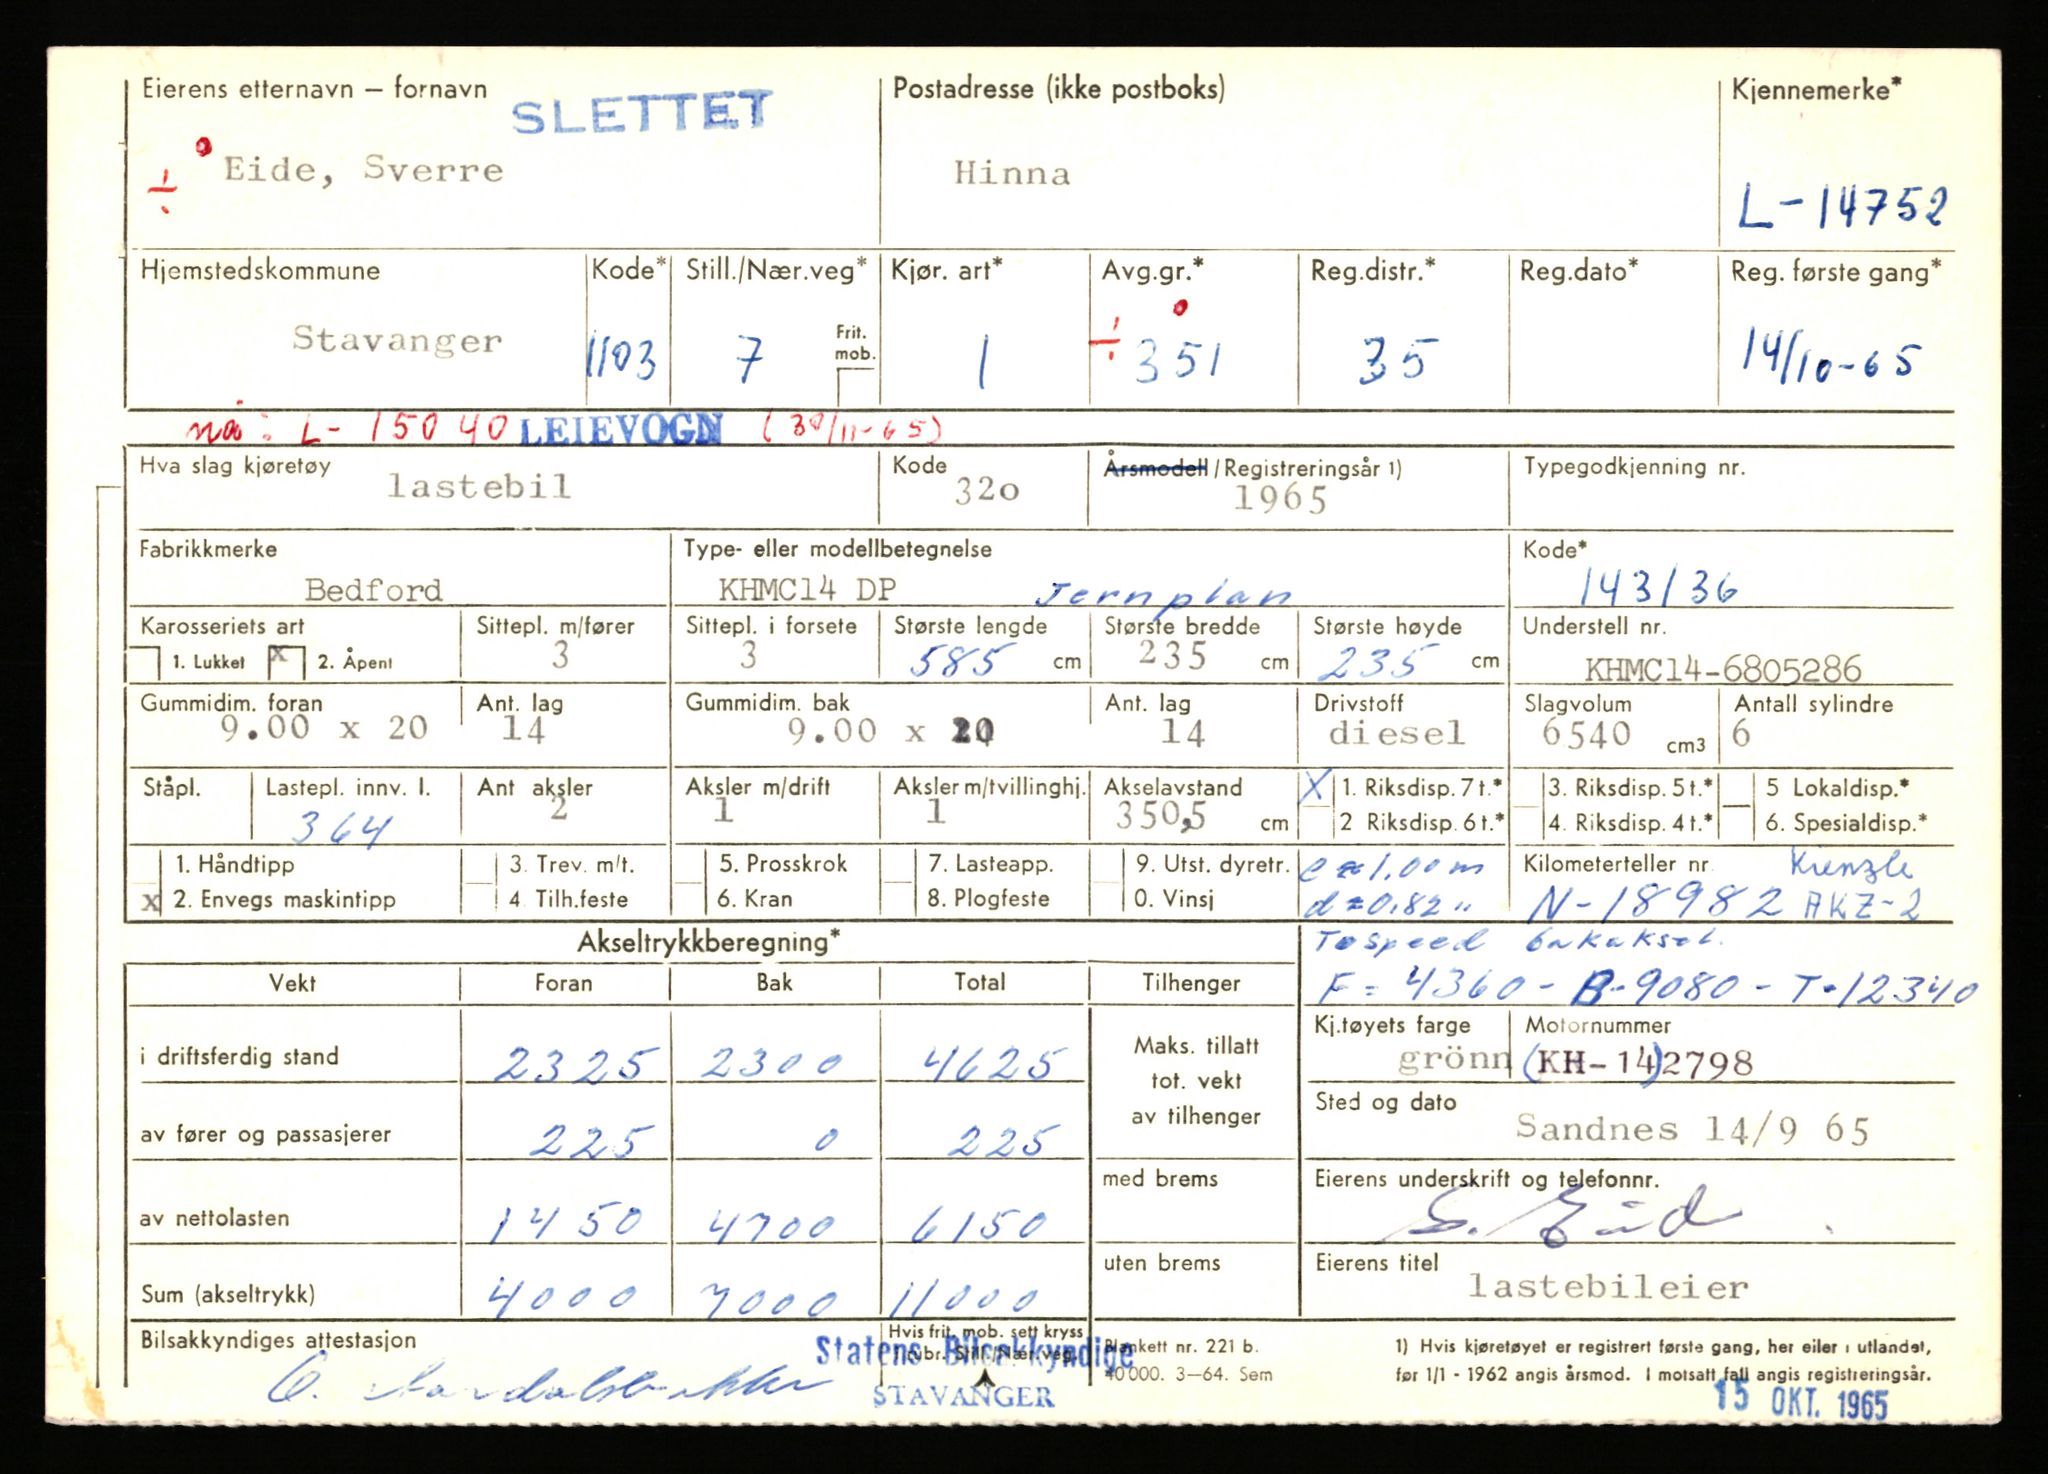 Eierens etternavn – fornavn
SLETTET
Postadresse (ikke postboks)
Kjennemerke*
÷ Eide, Sverre
Hinna
L-14752
Hjemstedskommune
Kode*
Still./Nær.veg*
Kjør. art*
Avg.gr.*
Reg.distr.*
Reg.dato*
Reg. første gang*
Stavanger
1103
7
Frit. mob.
1
÷ 351
35
14/10-65
nå: L-15040 LEIEVOGN (30/11-65)
Hva slag kjøretøy
lastebil
Kode
32o
Årsmodell / Registreringsår 1)
1965
Typegodkjenning nr.
Fabrikkmerke
Bedford
Type- eller modellbetegnelse
KHMC14 DP Jernplan
Kode*
143136
Karosseriets art
1. Lukket x 2. Åpent
Sittepl. m/fører
3
Sittepl. i forsete
3
Største lengde
585 cm
Største bredde
235 cm
Største høyde
235 cm
Understell nr.
KHMC14-6805286
Gummidim. foran
9.00 x 20
Ant. lag
14
Gummidim. bak
9.00 x 20
Ant. lag
14
Drivstoff
diesel
Slagvolum
6540 cm3
Antall sylindre
6
Ståpl.
Lastepl. innv. l.
364
Ant aksler
2
Aksler m/drift
1
Aksler m/tvillinghj.
1
Akselavstand
350,5 cm
X 1. Riksdisp. 7 t.*
2 Riksdisp. 6 t.*
3. Riksdisp. 5 t.*
4. Riksdisp. 4 t.*
5 Lokaldisp.*
6. Spesialdisp.*
1. Håndtipp
x 2. Envegs maskintipp
3. Trev. m/t.
4. Tilh.feste
5. Prosskrok
6. Kran
7. Lasteapp.
8. Plogfeste
9. Utst. dyretr.
0. Vinsj
e = 1.00 m
d = 0.82 "
Kilometerteller nr. Kienzle
N-18982 AKZ-2
Akseltrykkberegning*
Tospeed bakaksel.
F = 4360 - B-9080 - T-12340
Vekt
Foran
Bak
Total
Tilhenger
i driftsferdig stand
2325
2300
4625
Maks. tillatt
tot. vekt
av tilhenger
Kj.tøyets farge
grönn
Motornummer
(KH-14)2798
av fører og passasjerer
225
0
225
Sted og dato
Sandnes 14/9 65
av nettolasten
1450
4700
6150
med brems
Eierens underskrift og telefonnr.
S. Eide
Sum (akseltrykk)
4000
7000
11000
uten brems
Eierens titel
lastebileier
Bilsakkyndiges attestasjon
Hvis frit. mob. sett kryss
i rubr. Still./Nær.veg.
Statens Bilsakkyndige
STAVANGER
Blankett nr. 221 b.
40 000. 3–64. Sem
1) Hvis kjøretøyet er registrert første gang, her eller i utlandet,
før 1/1 - 1962 angis årsmod. I motsatt fall angis registreringsår.
15 OKT. 1965